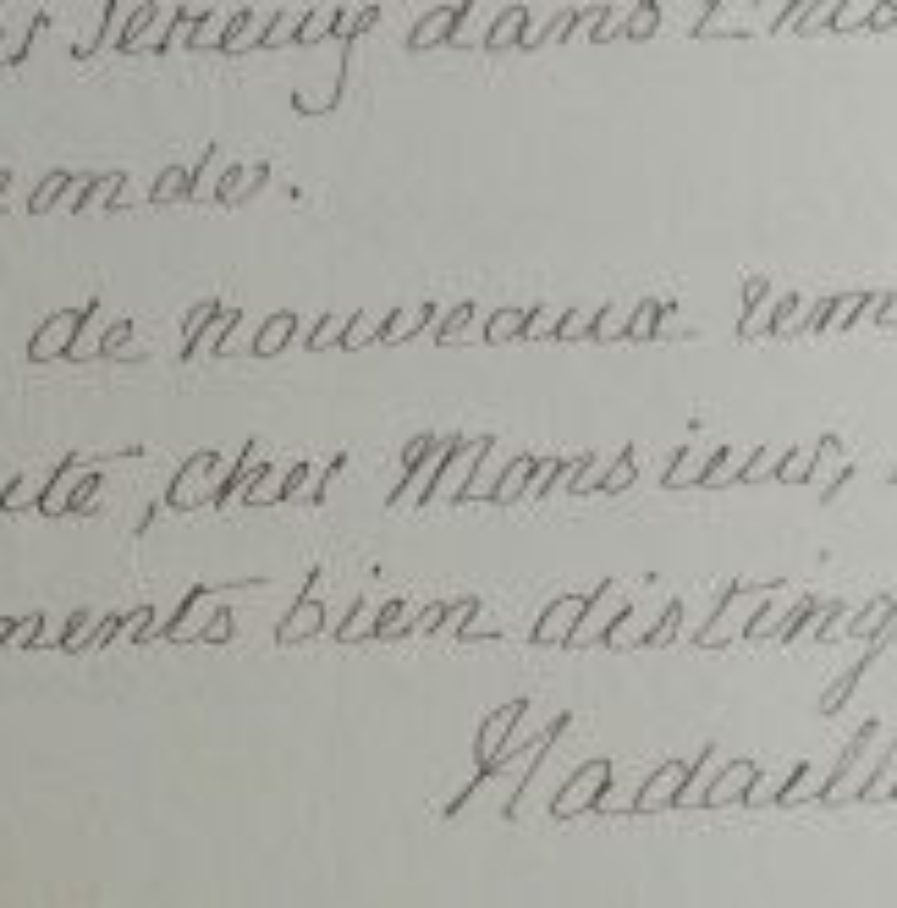 s Jeremy dans L'his
onde.
de nouveaux rem
ité, cher Monsieur,
ments bien disting
Nadaill